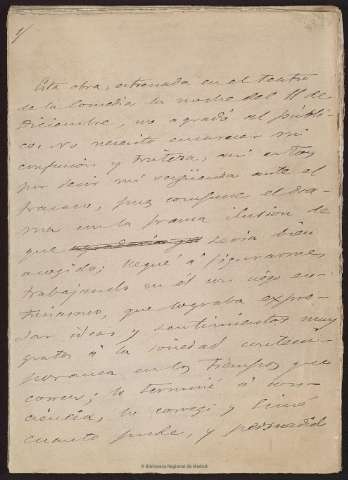 1/
Esta obra, estrenada en el teatro
de la Comedia la noche del 11 de
Diciembre, no agradó al públi-
co. No necesito encarecer mi
confusión y tristeza, casi estoy
por decir mi vergüenza ante el
fracaso, pues compuse el dra-
ma en la ilusión de
que sería bien
acogido; llegué á figurarme,
trabajando en él con ciego en-
tusiasmo, que lograba expre-
sar ideas y sentimientos muy
gratos á la sociedad contem-
poránea en los tiempos que
corren; lo terminé á con-
ciencia, lo corregí y limé
cuanto pude, y persuadido
© Biblioteca Regional de Madrid